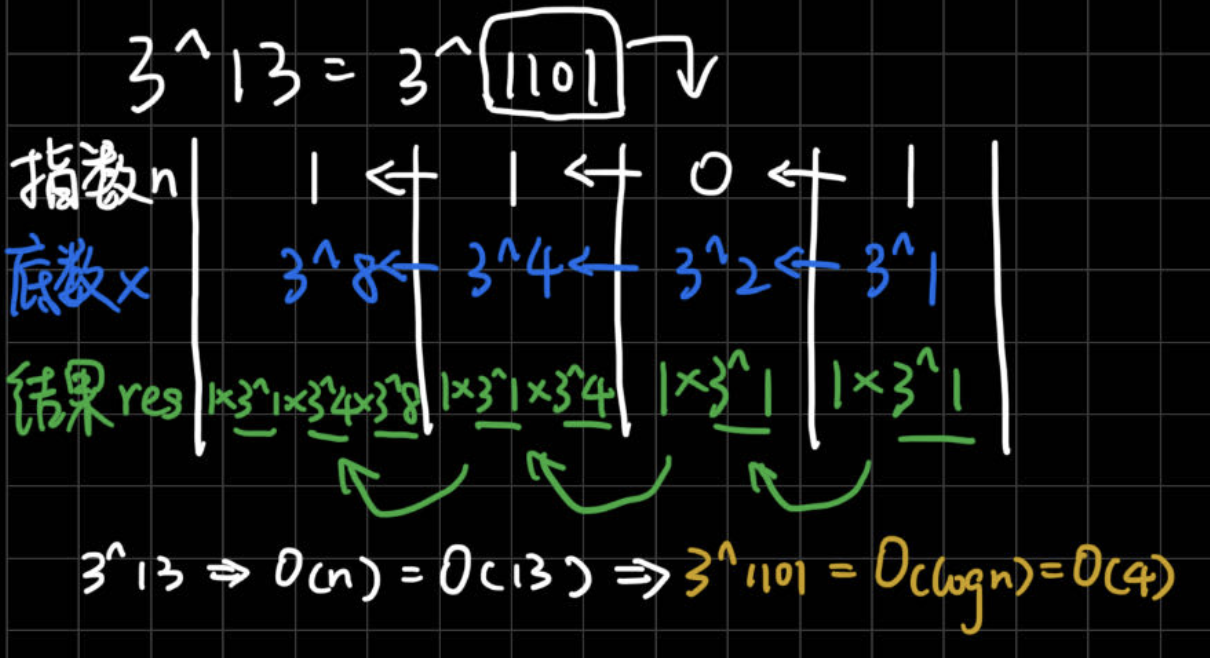 3^13 = 3^1101
指数n 1 ← 1 ← 0 ← 1
底数x 3^8 ← 3^4 ← 3^2 ← 3^1
结果res 1×3^1×3^4×3^8 1×3^1×3^4 1×3^1 1×3^1
3^13 ⇒ O(n) = O(13) ⇒ 3^1101 = O(logn) = O(4)